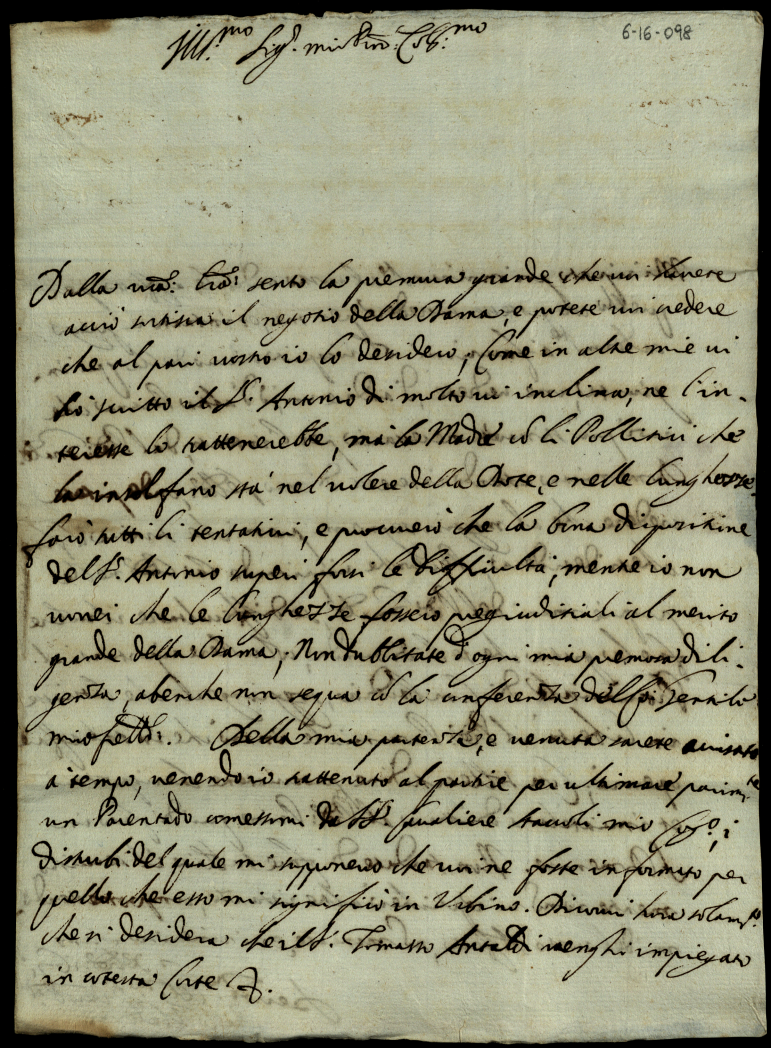 6-16-098
Ill.mo Sig.r mio
Dalla vra. sento la premura grande che voi havete
acciò sortisca il negotio della Dama, e potete voi credere
che al pari vostro io lo desidero, Come in altre mie vi
hò scritto il S.r Antonio di molto vi inclina, ne l'in-
teresse lo trattenerebbe, mà la Madre cō li Pollitici che
la stà nel volere della Dote, e nelle lunghezze.
farò tutti li tentativi, e procurerò che la bona dispositione
del S.r Antonio superi forsi le difficultà, mentre io non
vorrei che le lunghezze fossero pregiuditiali al merito
grande della Dama, Non dubbitate d'ogni mia premorosa dili-
genza, abenche non segua cō la conferenza del
Della mia partenza, e venuta sarete avisato
a tempo, venendo io trattenuto al partire per ultimare parim.te
un Parentado comessomi dal S.r Cavaliere Staccoli mio i
disturbi del quale mi supponevo che voi ne foste informato per
quello che esso mi significò in Urbino. Dicovi hora solam.te
che si desidera che il S.r Tomasso Antaldi venghi impiegato
in cotesta Corte